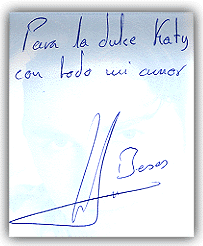 Para la dulce Katy
con todo mi amor
Besos